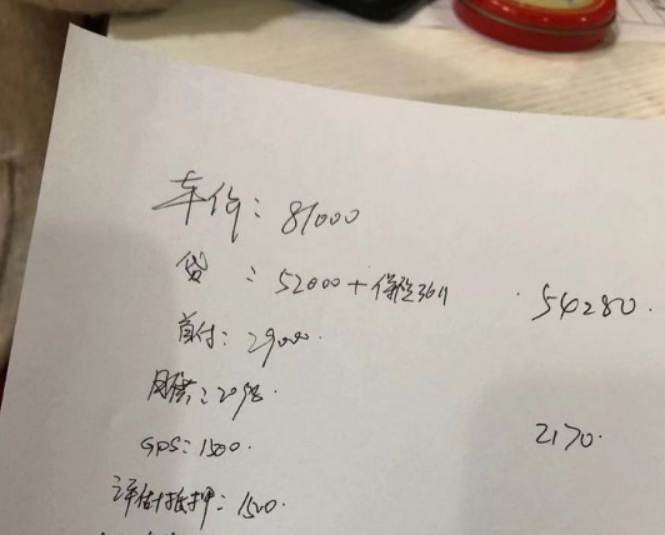 车价: 81000
贷: 52000+保险3611 54280.
首付: 29000.
月供: 2098.
2170.
GPS: 1500.
评估抵押: 1500.